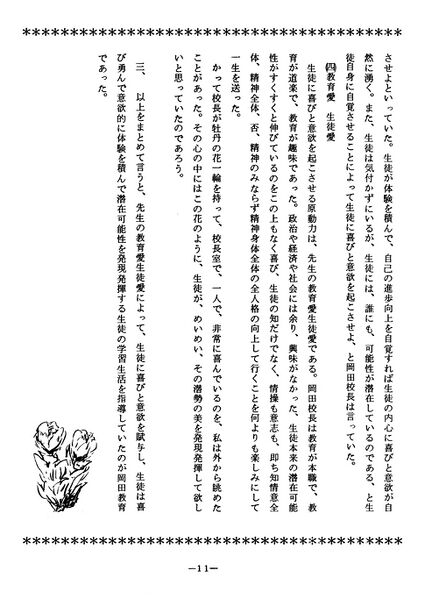 ＊＊＊＊＊＊＊＊＊＊＊＊＊＊＊＊＊＊＊＊＊＊＊＊＊＊＊＊＊＊＊＊＊＊
させよといっていた。生徒が体験を積んで、自己の進歩向上を自覚すれば生徒の内心に喜びと意欲が自
然に湧く。また、生徒は気付かずにいるが、生徒には、誰にも、可能性が潜在しているのである、と生
徒自身に自覚させることによって生徒に喜びと意欲を起こさせよ、と岡田校長は言っていた。
㈣教育愛　生徒愛
　生徒に喜びと意欲を起こさせる原動力は、先生の教育愛生徒愛である。岡田校長は教育が本職で、教
育が道楽で、教育が趣味であった。政治や経済や社会には余り、興味がなかった。生徒本来の潜在可能
性がすくすくと伸びているのをこの上もなく喜び、生徒の知だけでなく、情操も意志も、即ち知情意全
体、精神全体、否、精神のみならず精神身体全体の全人格の向上して行くことを何よりも楽しみにして
一生を送った。
　かって校長が牡丹の花一輪を持って、校長室で、一人で、非常に喜んでいるのを、私は外から眺めた
ことがあった。その心の中にはこの花のように、生徒が、めいめい、その潜勢の美を発現発揮して欲し
いと思っていたのであろう。
三、　以上をまとめて言うと、先生の教育愛生徒愛によって、生徒に喜びと意欲を賦与し、生徒は喜
び勇んで意欲的に体験を積んで潜在可能性を発現発揮する生徒の学習生活を指導していたのが岡田教育
であった。
＊＊＊＊＊＊＊＊＊＊＊＊＊＊＊＊＊＊＊＊＊＊＊＊＊＊＊＊＊＊＊＊＊＊
－11－